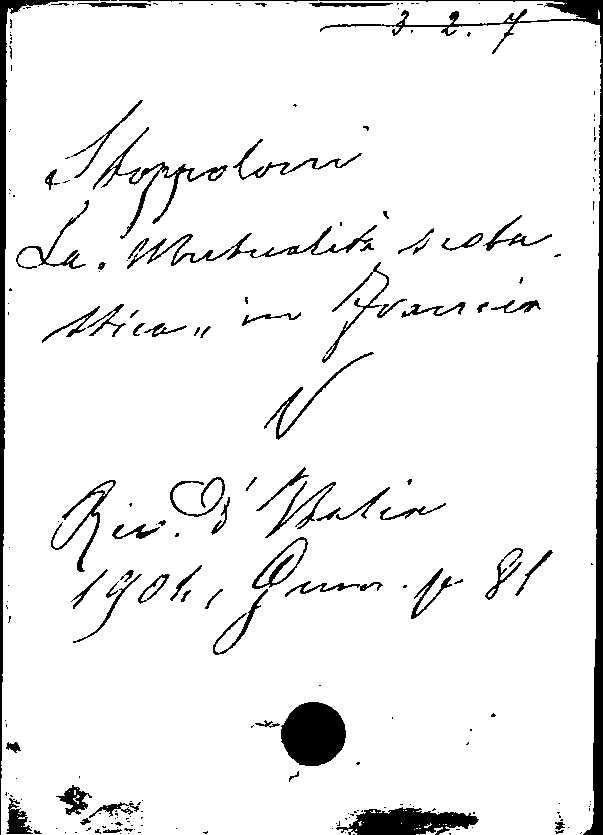 3. 2. 7
Stoppoloni
La „Mutualità scola-
stica„ in Francia
V
Riv. d'Italia
1904, p 81